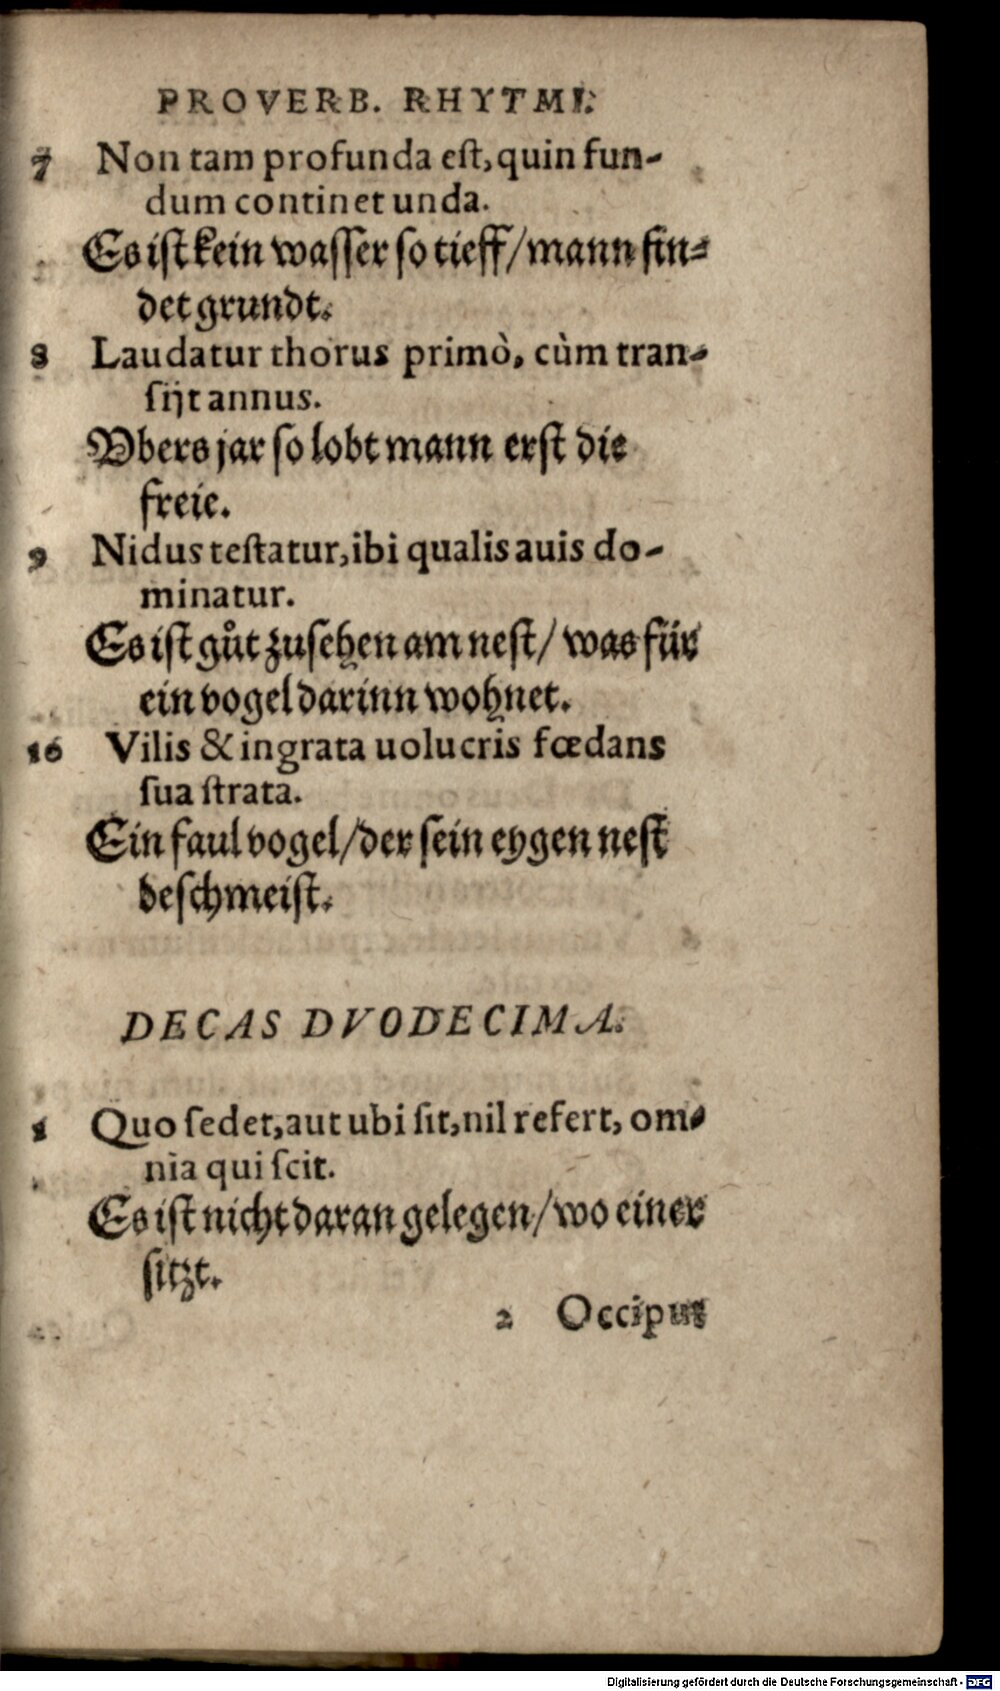 PROVERB. RHYTMI.
7 Non tam profunda eſt, quin fun-
dum continet unda.
Es iſt kein waſſer ſo tieff/ mann fin-
det grundt.
8 Laudatur thorus primò, cùm tran-
ſijt annus.
Vbers jar ſo lobt mann erſt die
freie.
9 Nidus teſtatur, ibi qualis auis do-
minatur.
Es iſt gůt zuſehen am neſt/ was für
ein vogel darinn wohnet.
10 Vilis & ingrata uolucris fœdans
ſua ſtrata.
Ein faul vogel/ der ſein eygen neſt
beſchmeiſt.
DECAS DVODECIMA.
1 Quo ſedet, aut ubi ſit, nil refert, om-
nia qui ſcit.
Es iſt nicht daran gelegen/ wo einer
ſitzt.
2 Occiput
Digitalisierung gefördert durch die Deutsche Forschungsgemeinschaft - DFG